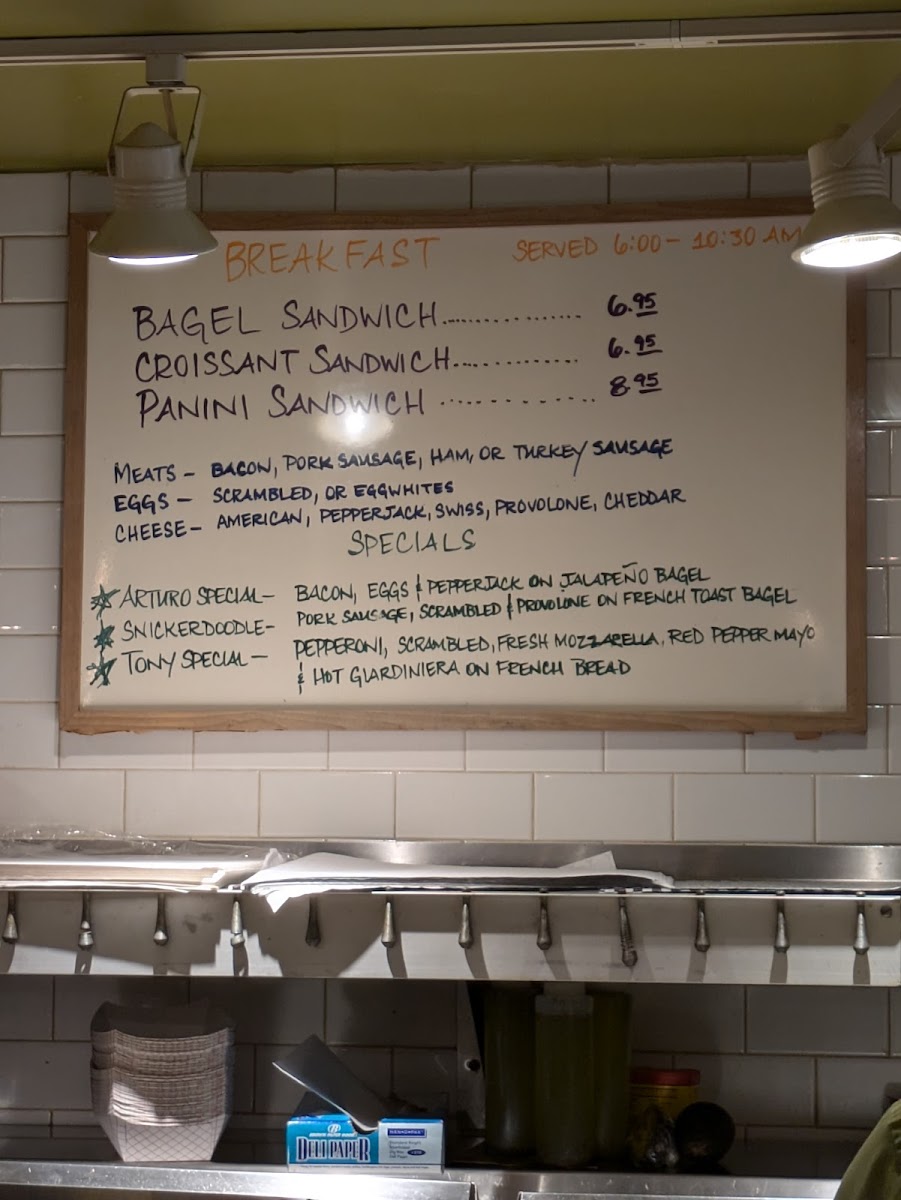 BREAKFAST SERVED 6:00 - 10:30 AM
BAGEL SANDWICH................. 6.95
CROISSANT SANDWICH............. 6.95
PANINI SANDWICH ............... 8.95
MEATS - BACON, PORK SAUSAGE, HAM, OR TURKEY SAUSAGE
EGGS - SCRAMBLED, OR EGGWHITES
CHEESE - AMERICAN, PEPPERJACK, SWISS, PROVOLONE, CHEDDAR
SPECIALS
ARTURO SPECIAL - BACON, EGGS & PEPPERJACK ON JALAPEÑO BAGEL
SNICKERDOODLE - PORK SAUSAGE, SCRAMBLED & PROVOLONE ON FRENCH TOAST BAGEL
TONY SPECIAL - PEPPERONI, SCRAMBLED, FRESH MOZZARELLA, RED PEPPER MAYO
& HOT GIARDINIERA ON FRENCH BREAD
DELI PAPER